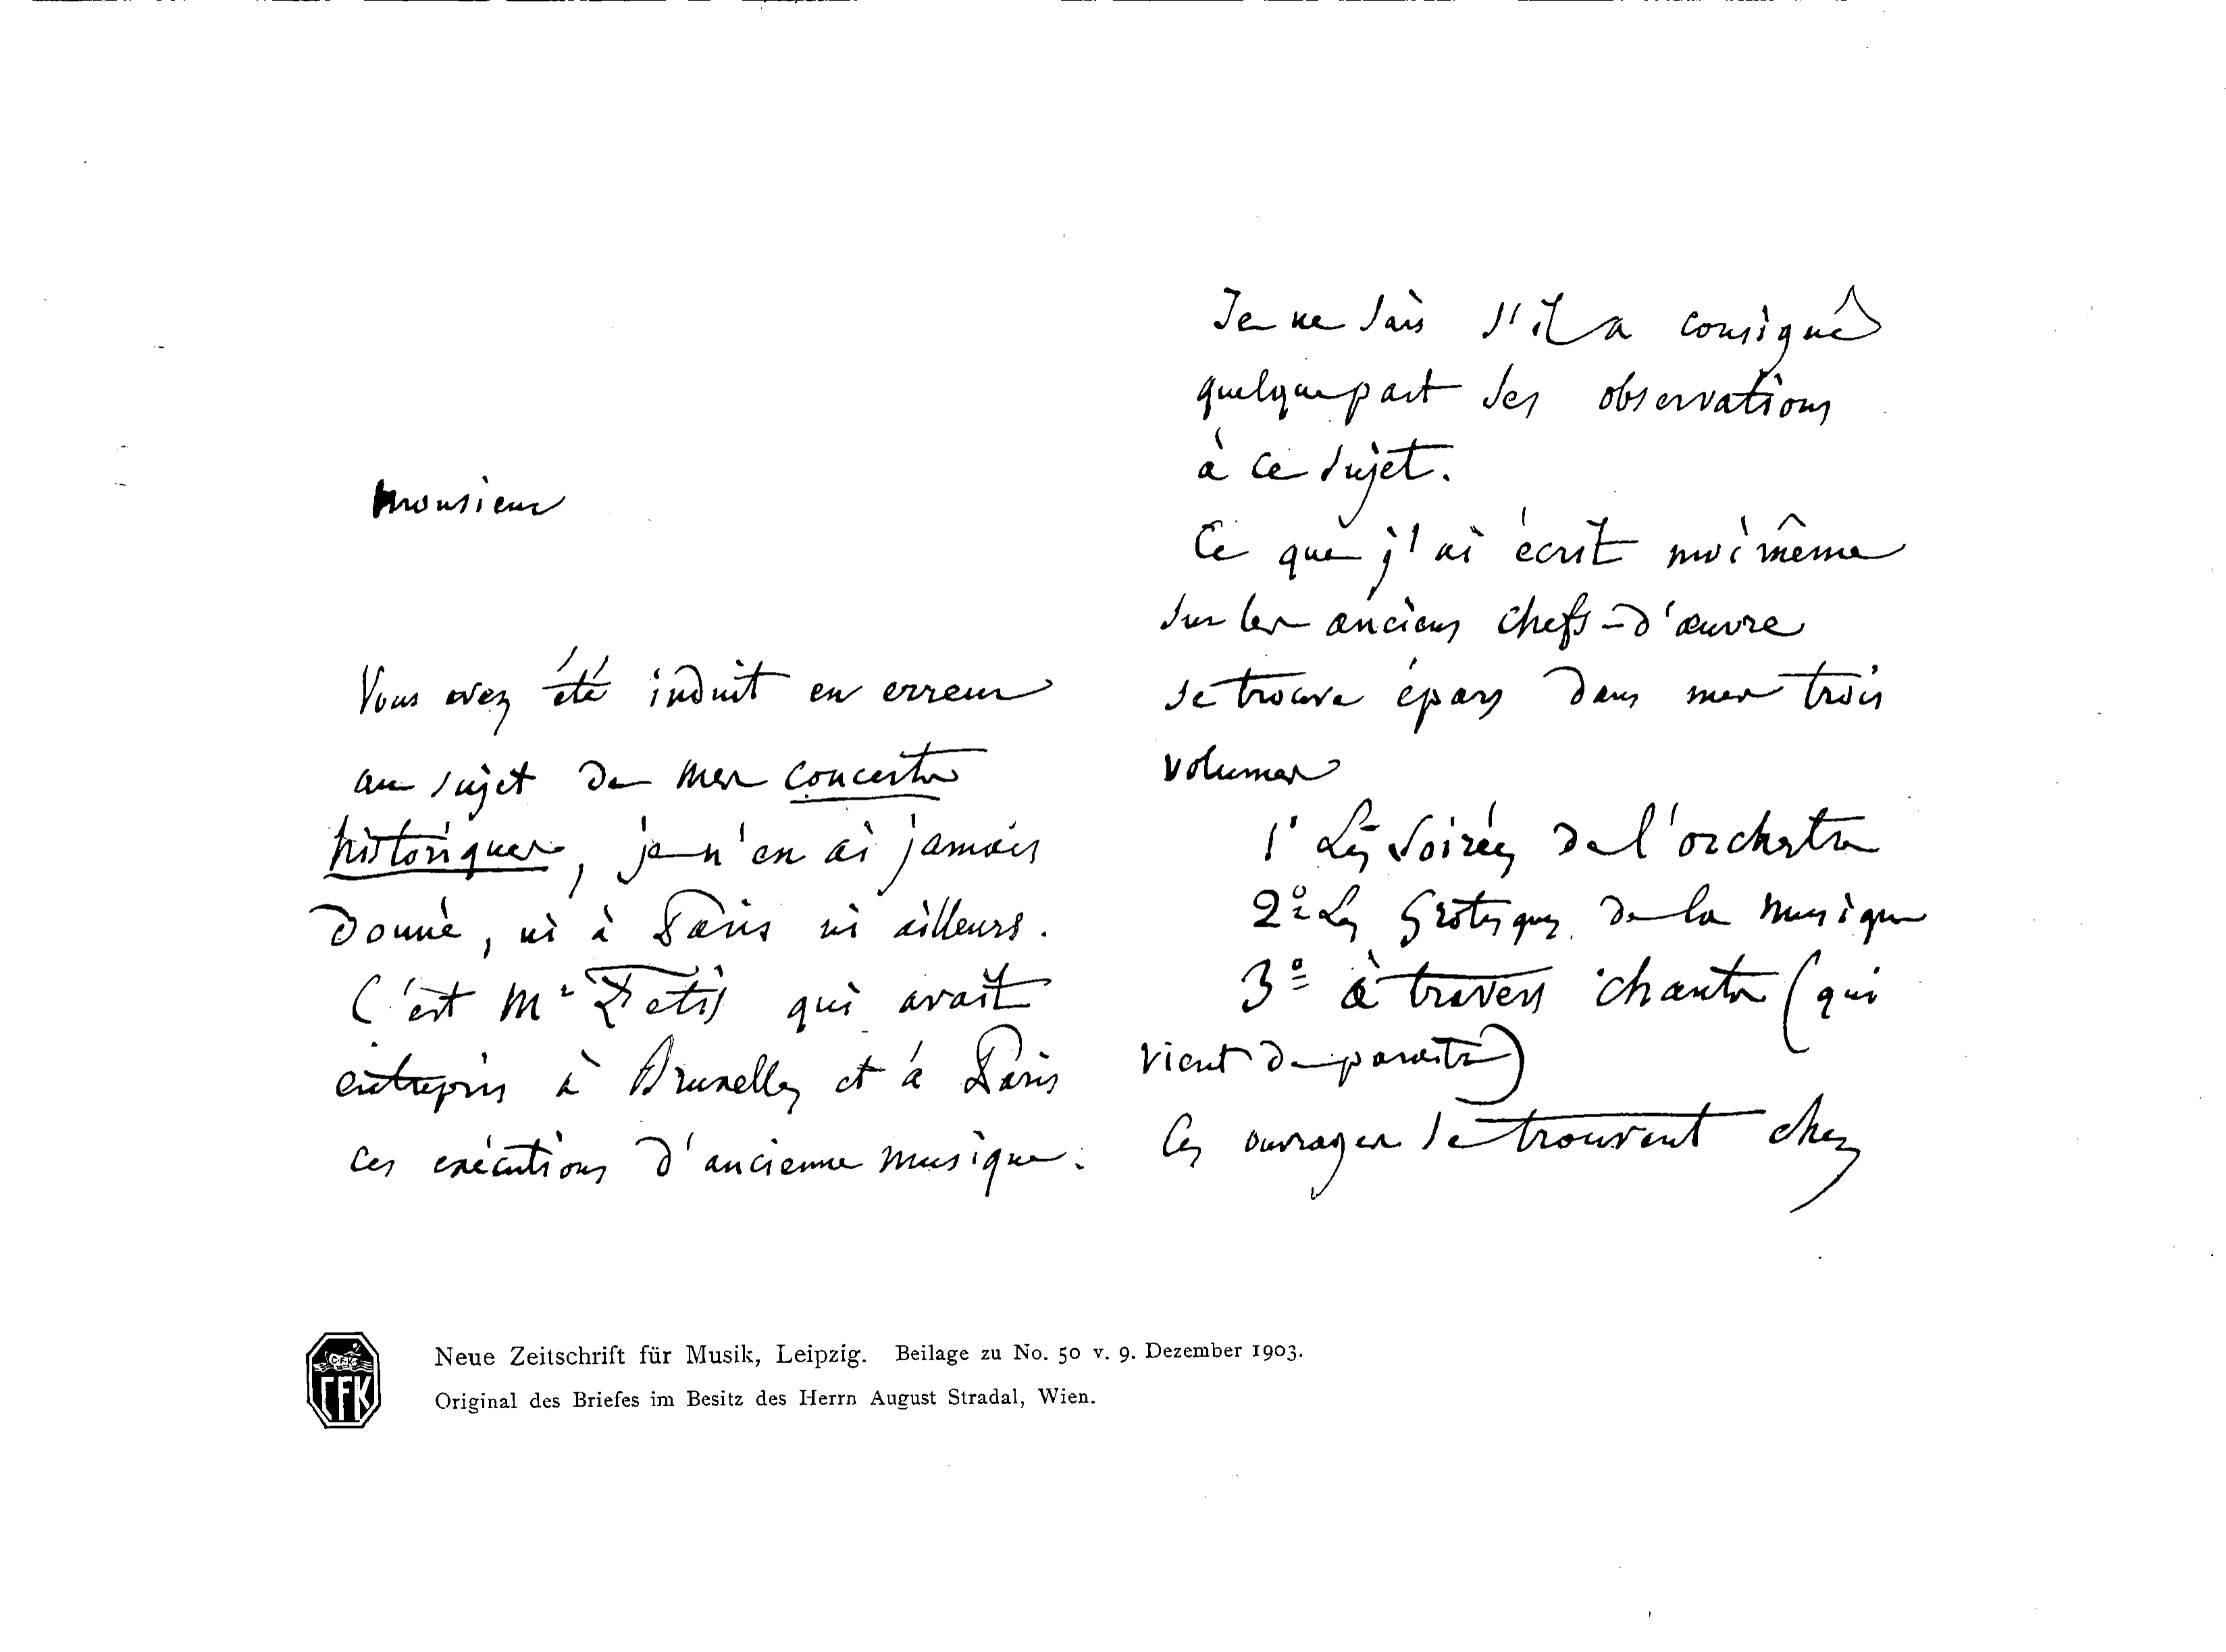 Monsieur
Vous avez été induit en erreur
au sujet de mes concerts
historiques, je n'en ai jamais
donné, ni à Paris ni ailleurs.
C'est Mr Fetis qui avait
entrepris à Bruxelles et à Paris
ces exécutions d'ancienne musique.
Je ne sais s'il a consigné
quelque part ses observations
à ce sujet.
Ce que j'ai écrit moi même
sur les anciens chefs-d'œuvre
se trouve épars dans mes trois
volumes
1° Les Soirées de l'orchestre
2° Les Grotesques de la musique
3° à travers chants (qui
vient de paraitre)
Ces ouvrages se trouvent chez
C.F.K.
CFK
Neue Zeitschrift für Musik, Leipzig. Beilage zu No. 50 v. 9. Dezember 1903.
Original des Briefes im Besitz des Herrn August Stradal, Wien.